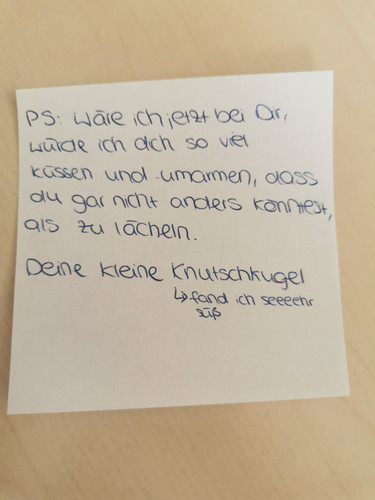 PS: Wäre ich jetzt bei Dir,
würde ich dich so viel
küssen und umarmen, dass
du gar nicht anders könntest,
als zu lächeln.
Deine kleine Knutschkugel
↳ fand ich seeeehr
süß